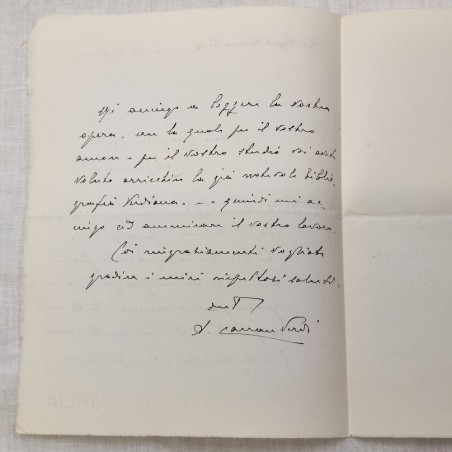 Mi accingo a leggere la vostra
opera, con la quale per il vostro
amore e per il vostro studio voi avete
voluto arricchire la già notevole biblio
grafia Verdiana. - e quindi mi ac
cingo ad ammirare il vostro lavoro.
Coi ringraziamenti vogliate
gradire i miei rispettosi saluti.
A. Carrara Verdi